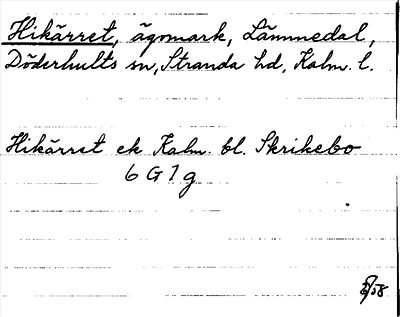 Hikärret, ägomark, Lämmedal,
Döderhults sn, Stranda hd, Kalm. l.
Hikärret ek Kalm. bl. Skrikebo
6 G 1 g